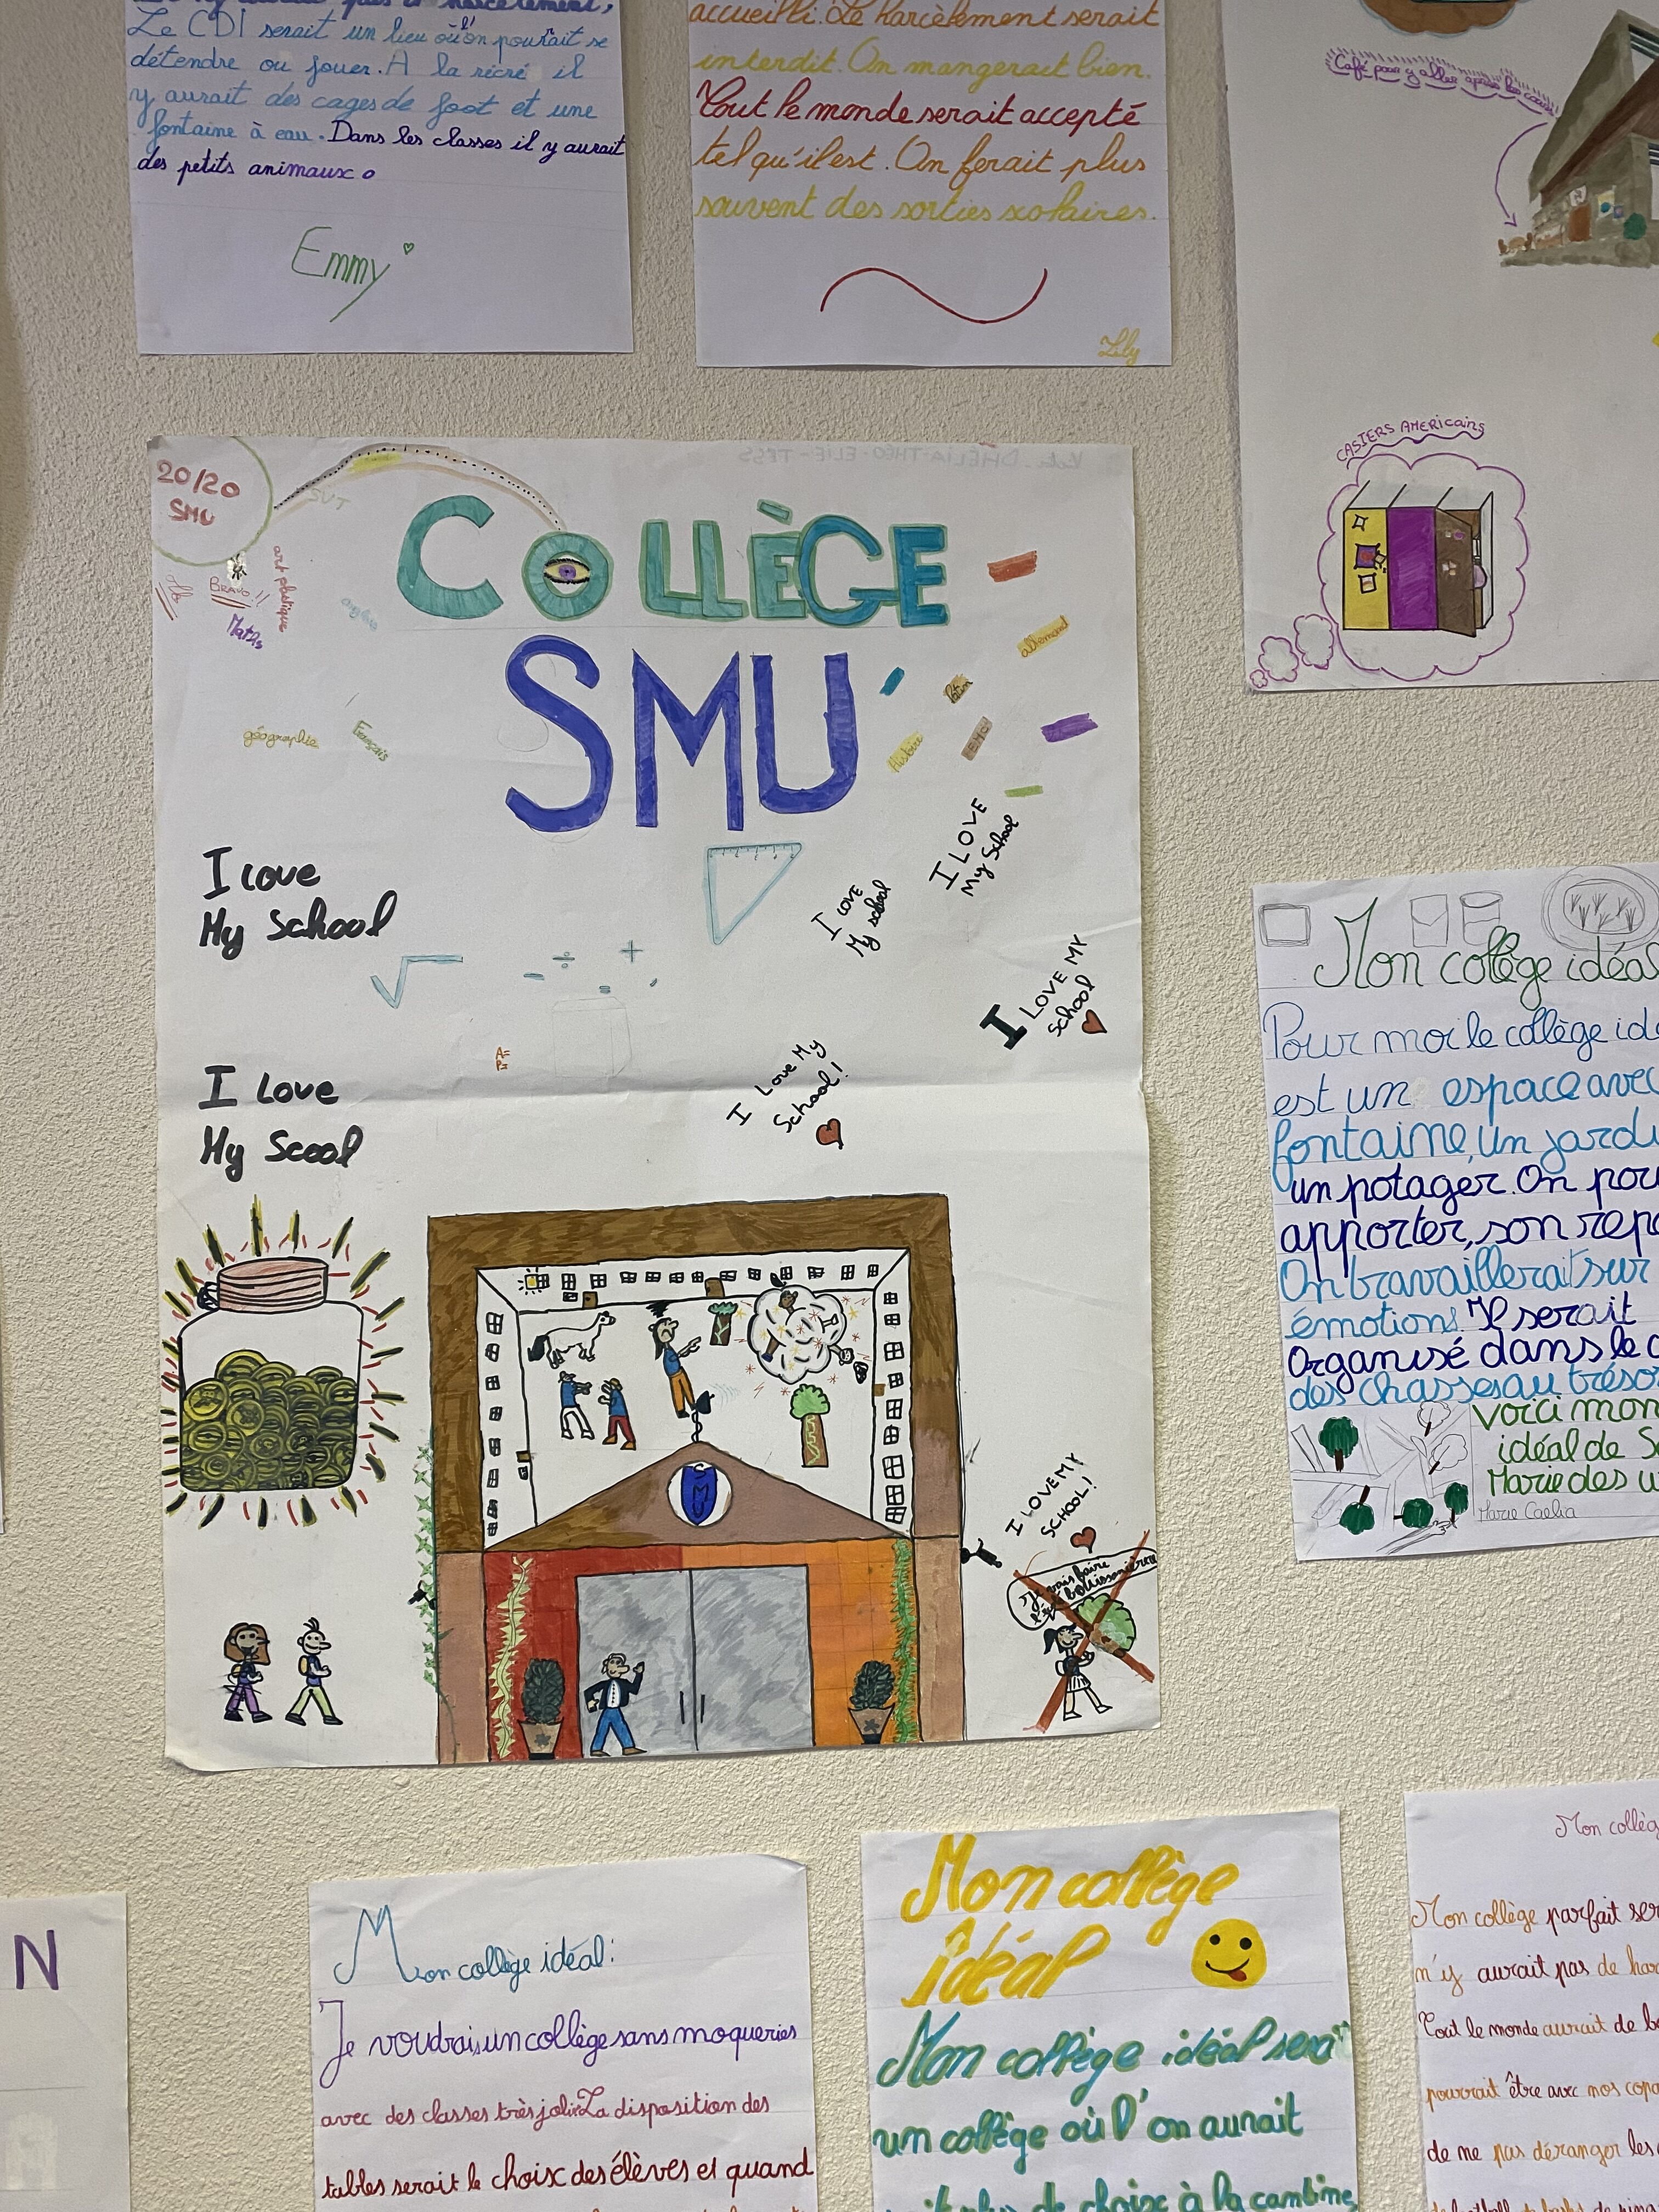 Le CDI serait un lieu où l'on pourrait se
détendre ou jouer. A la récré il
y aurait des cages de foot et une
fontaine à eau. Dans les classes il y aurait
des petits animaux.
Emmy
accueilli. Le harcèlement serait
interdit. On mangerait bien.
Tout le monde serait accepté
tel qu'il est. On ferait plus
souvent des sorties scolaires.
Lily
Café pour y aller après les cours
CASIERS AMERICAINS
20/20
SMU
SVT
BRAVO!!
Maths
art plastique
anglais
géographie
Français
COLLÈGE
SMU
allemand
latin
EMC
Histoire
I Love
My School
I LOVE
My School
I LOVE
My School
I LOVE MY
School
I Love My
School!
A=
P=
I Love
My Scool
SMU
I LOVE MY
SCHOOL!
Je vais faire
l'école buissonnière
Mon collège idéal
Pour moi le collège idé
est un espace avec
fontaine, un jardi
un potager. On pou
apporter, son repa
On travaillerait sur
émotions. Il serait
Organisé dans le c
des chasses au trésor
Voici mon
idéal de S
Marie des u
Marie Caelia
N
Mon collège idéal:
Je voudrais un collège sans moqueries
avec des classes très jolie. La disposition des
tables serait le choix des élèves et quand
Mon collège
idéal
Mon collège idéal serait
un collège où l'on aurait
plus de choix à la cantine,
Mon collèg
Mon collège parfait ser
n'y aurait pas de har
Tout le monde aurait de b
pourrait être avec nos copa
de ne pas déranger les